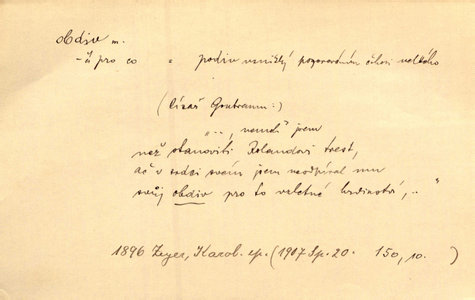 obdiv m.
-ž pro co = podiv vzniklý pozorováním čehosi velkého
(Císař Goutramu:)
"..., nemoh' jsem
než stanoviti Rolandovi trest,
ač v srdci svém jsem neodpíral mu
svůj obdiv pro to vzletné hrdinství, .."
1896 Zeyer, Karol. ep. (1907 Sp. 20. 150, 10. )